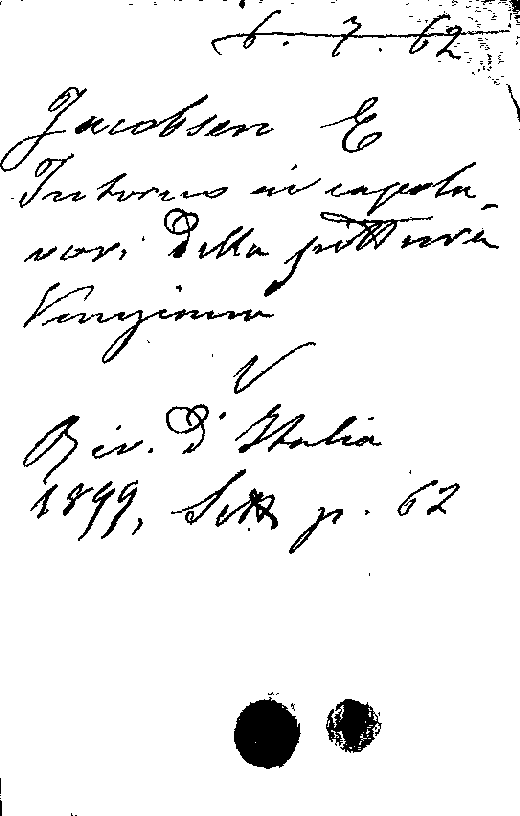 6. 7. 62
Jacobsen E
Intorno ai capola-
vori della pittura
Veneziana
V
Riv. d'Italia
1899, Sett p. 62